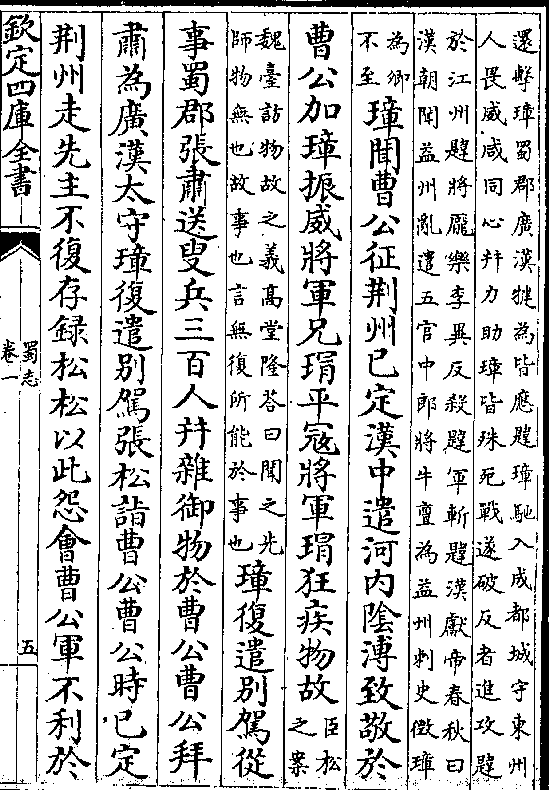 還擊璋蜀郡廣漢犍為皆應韙璋馳入成都城守東州
人畏威咸同心幷力助璋皆殊死戰遂破反者進攻韙
於江州韙將龐樂李異反殺韙軍斬韙漢獻帝春秋曰
漢朝聞益州亂遣五官中郎將牛亶為益州刺史徵璋
為卿
不至
璋聞曹公征荆州已定漢中遣河内陰溥致敬於
曹公加璋振威將軍兄瑁平冦將軍瑁狂疾物故
臣松
之案
魏臺訪物故之義高堂隆答曰聞之先
師物無也故事也言無復所能於事也
璋復遣别駕從
事蜀郡張肅送叟兵三百人幷雜御物於曹公曹公拜
肅為廣漢太守璋復遣别駕張松詣曹公曹公時已定
荆州走先主不復存録松松以此怨會曹公軍不利於
欽定四庫全書
蜀志
卷一
五